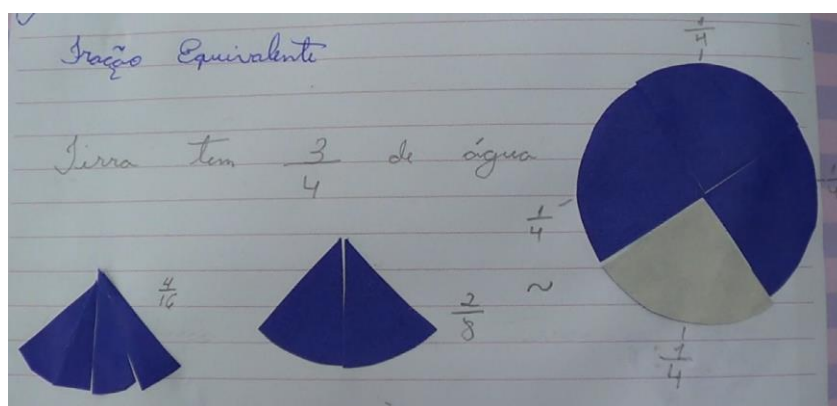 Fração Equivalente
1/4
Terra tem 3/4 de água
1/4
4/16
2/8
~
1/4